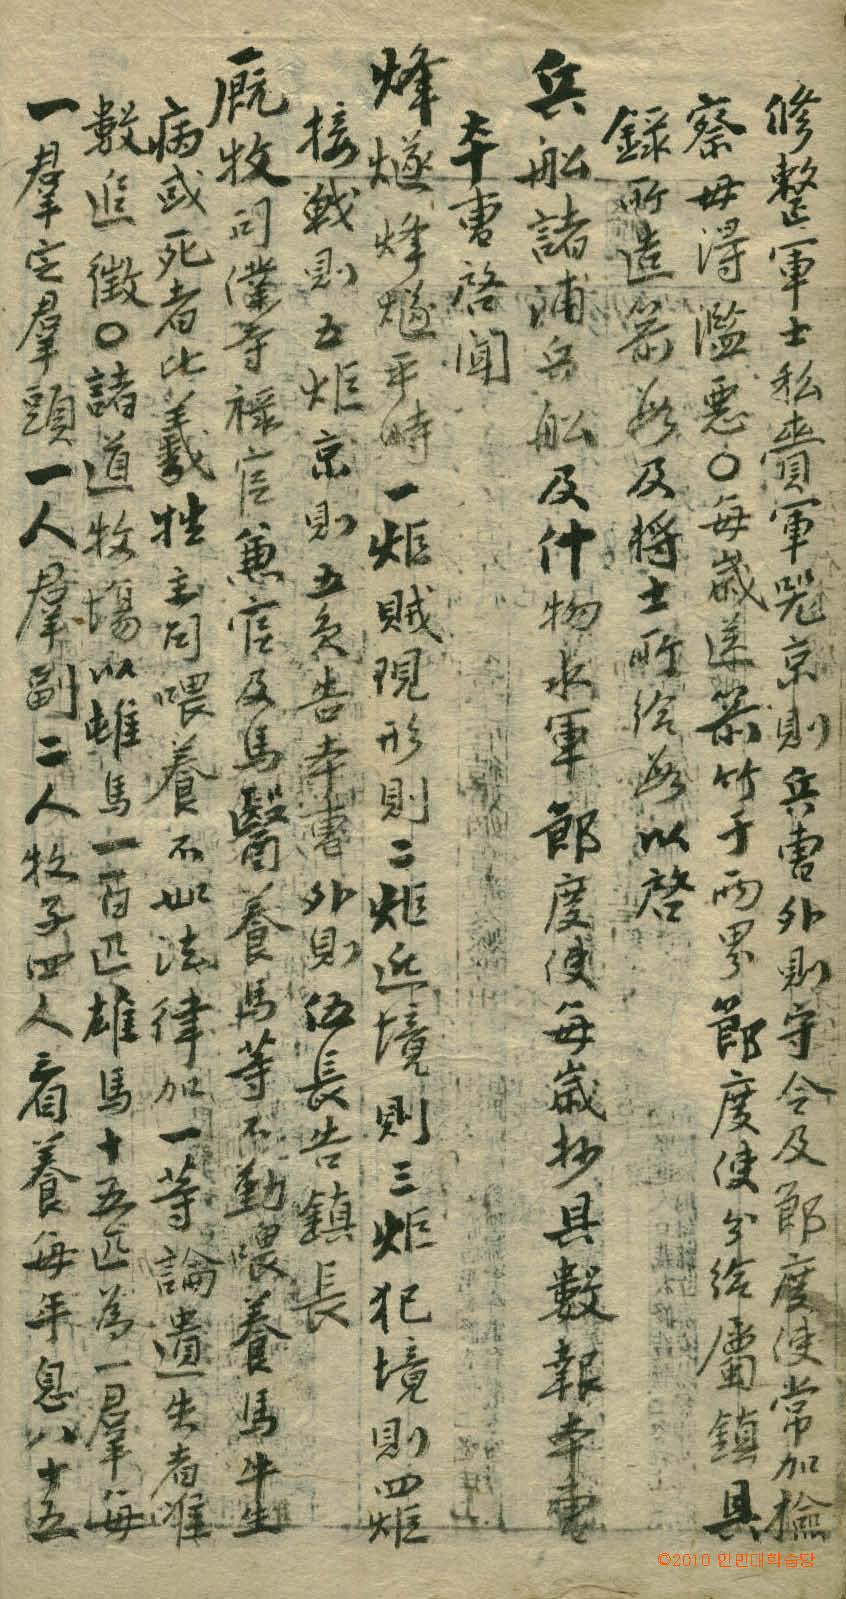 修整軍士私賫軍器京則兵曹外則守令及節度使常加檢
察毋得濫惡○每歲送箭竹于兩界節度使分給屬鎮具
錄所造箭數及將士所給數以啓
兵船諸浦兵船及什物水軍節度使每歲抄具數報本曹
本曹啓聞
烽燧烽燧平時一炬賊現形則二炬近境則三炬犯境則四炬
接戰則五炬京則五員告本曹外則伍長告鎮長
廐牧司僕寺祿官兼官及馬醫養馬等不勤喂養馬牛生
病或死者比羲牲主司喂養不如法律加一等論遺失者准
數追徵○諸道牧場以雌馬一百匹雄馬十五匹為一羣每
一羣定羣頭一人羣副二人牧子四人看養每年息八十五
©2010 인민대학습당